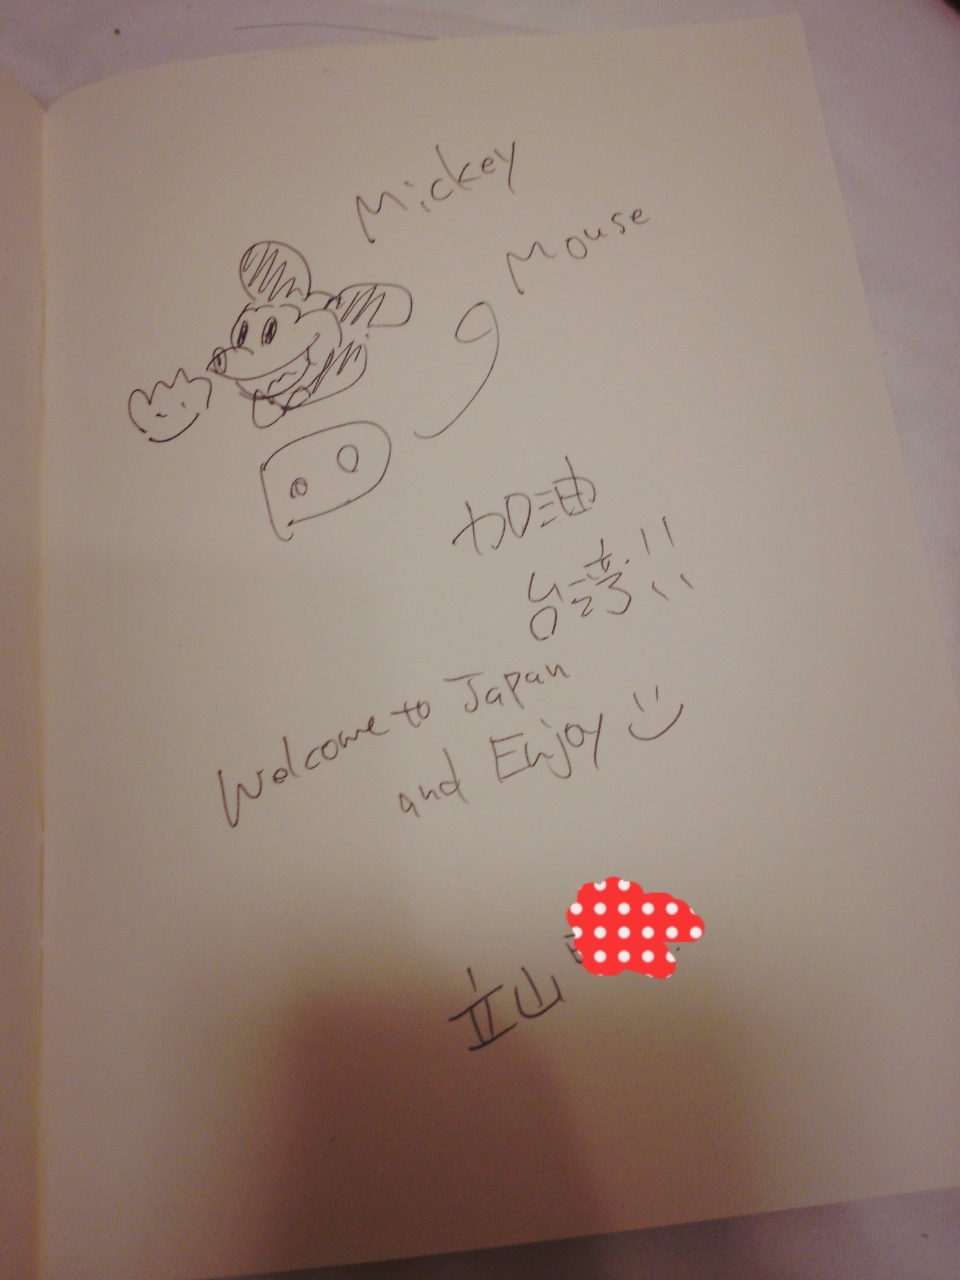 Mickey
Mouse
加油
台湾!!
Welcome to Japan
and Enjoy
立山